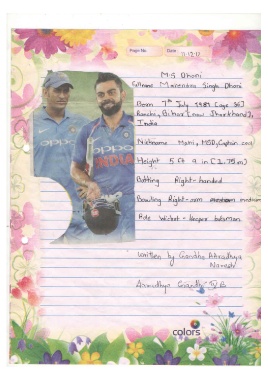 Page No. Date 11.12.17
M.S Dhoni
Fullname Mahendra Singh Dhoni
Born 7th July 1981 [age 36]
Ranchi, Bihar (now Jharkhand),
India
Nickname Mahi, MSD, Captain cool
Height 5 ft 9 in [1.75m]
Batting Right-handed
Bowling Right-arm medium
Role Wicket-keeper batsman
Written by
oppo
oppo
INDIA
colors